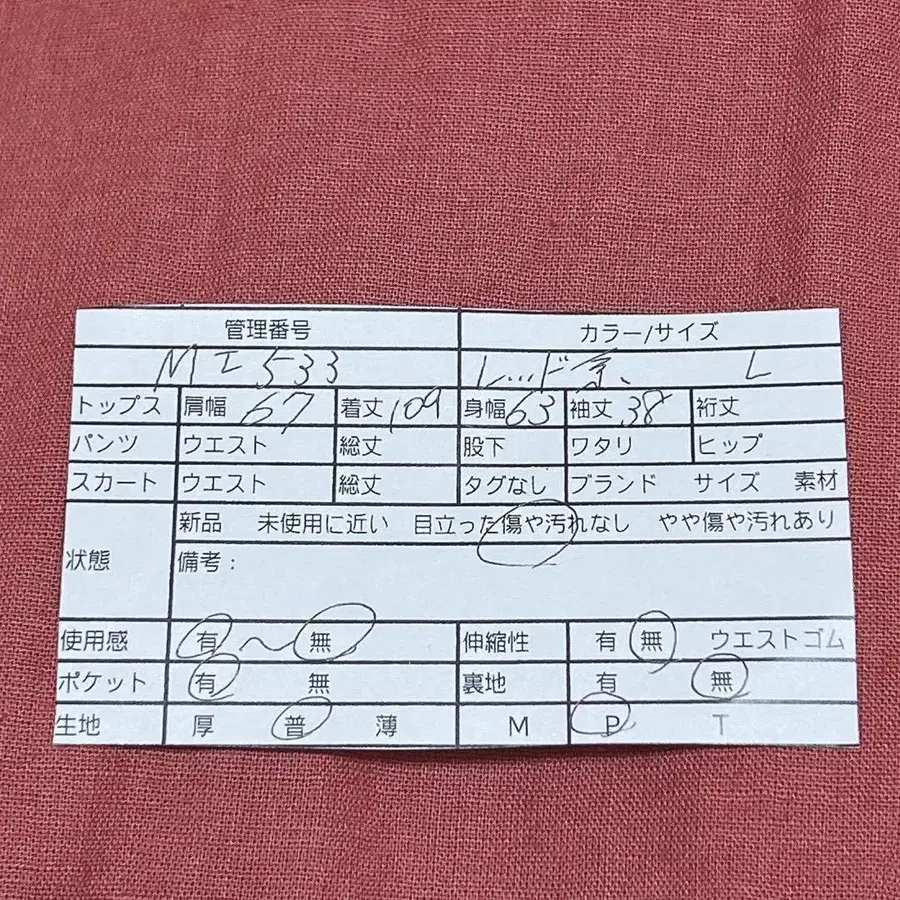 管理番号 カラー/サイズ
MI533 レッド系、 L
トップス 肩幅 67 着丈 109 身幅 63 袖丈 38 裄丈
パンツ ウエスト 総丈 股下 ワタリ ヒップ
スカート ウエスト 総丈 タグなし ブランド サイズ 素材
状態 新品 未使用に近い 目立った傷や汚れなし やや傷や汚れあり
備考：
使用感 有 〜 無 伸縮性 有 無 ウエストゴム
ポケット 有 無 裏地 有 無
生地 厚 普 薄 M P T